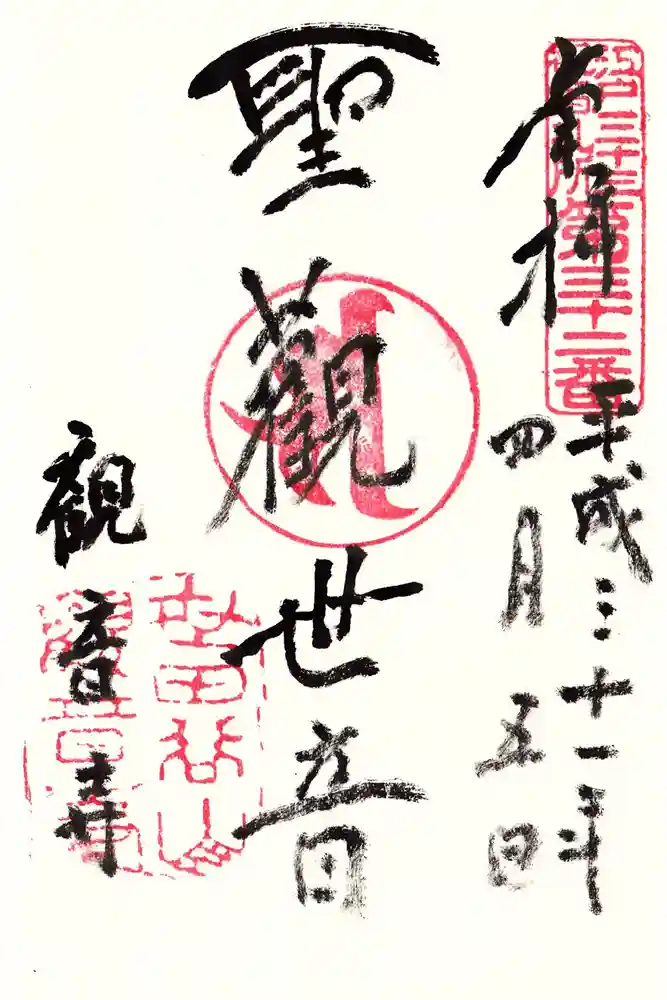 奉拝
第三十二番
平成三十一年
四月五日
聖觀世音
觀音寺